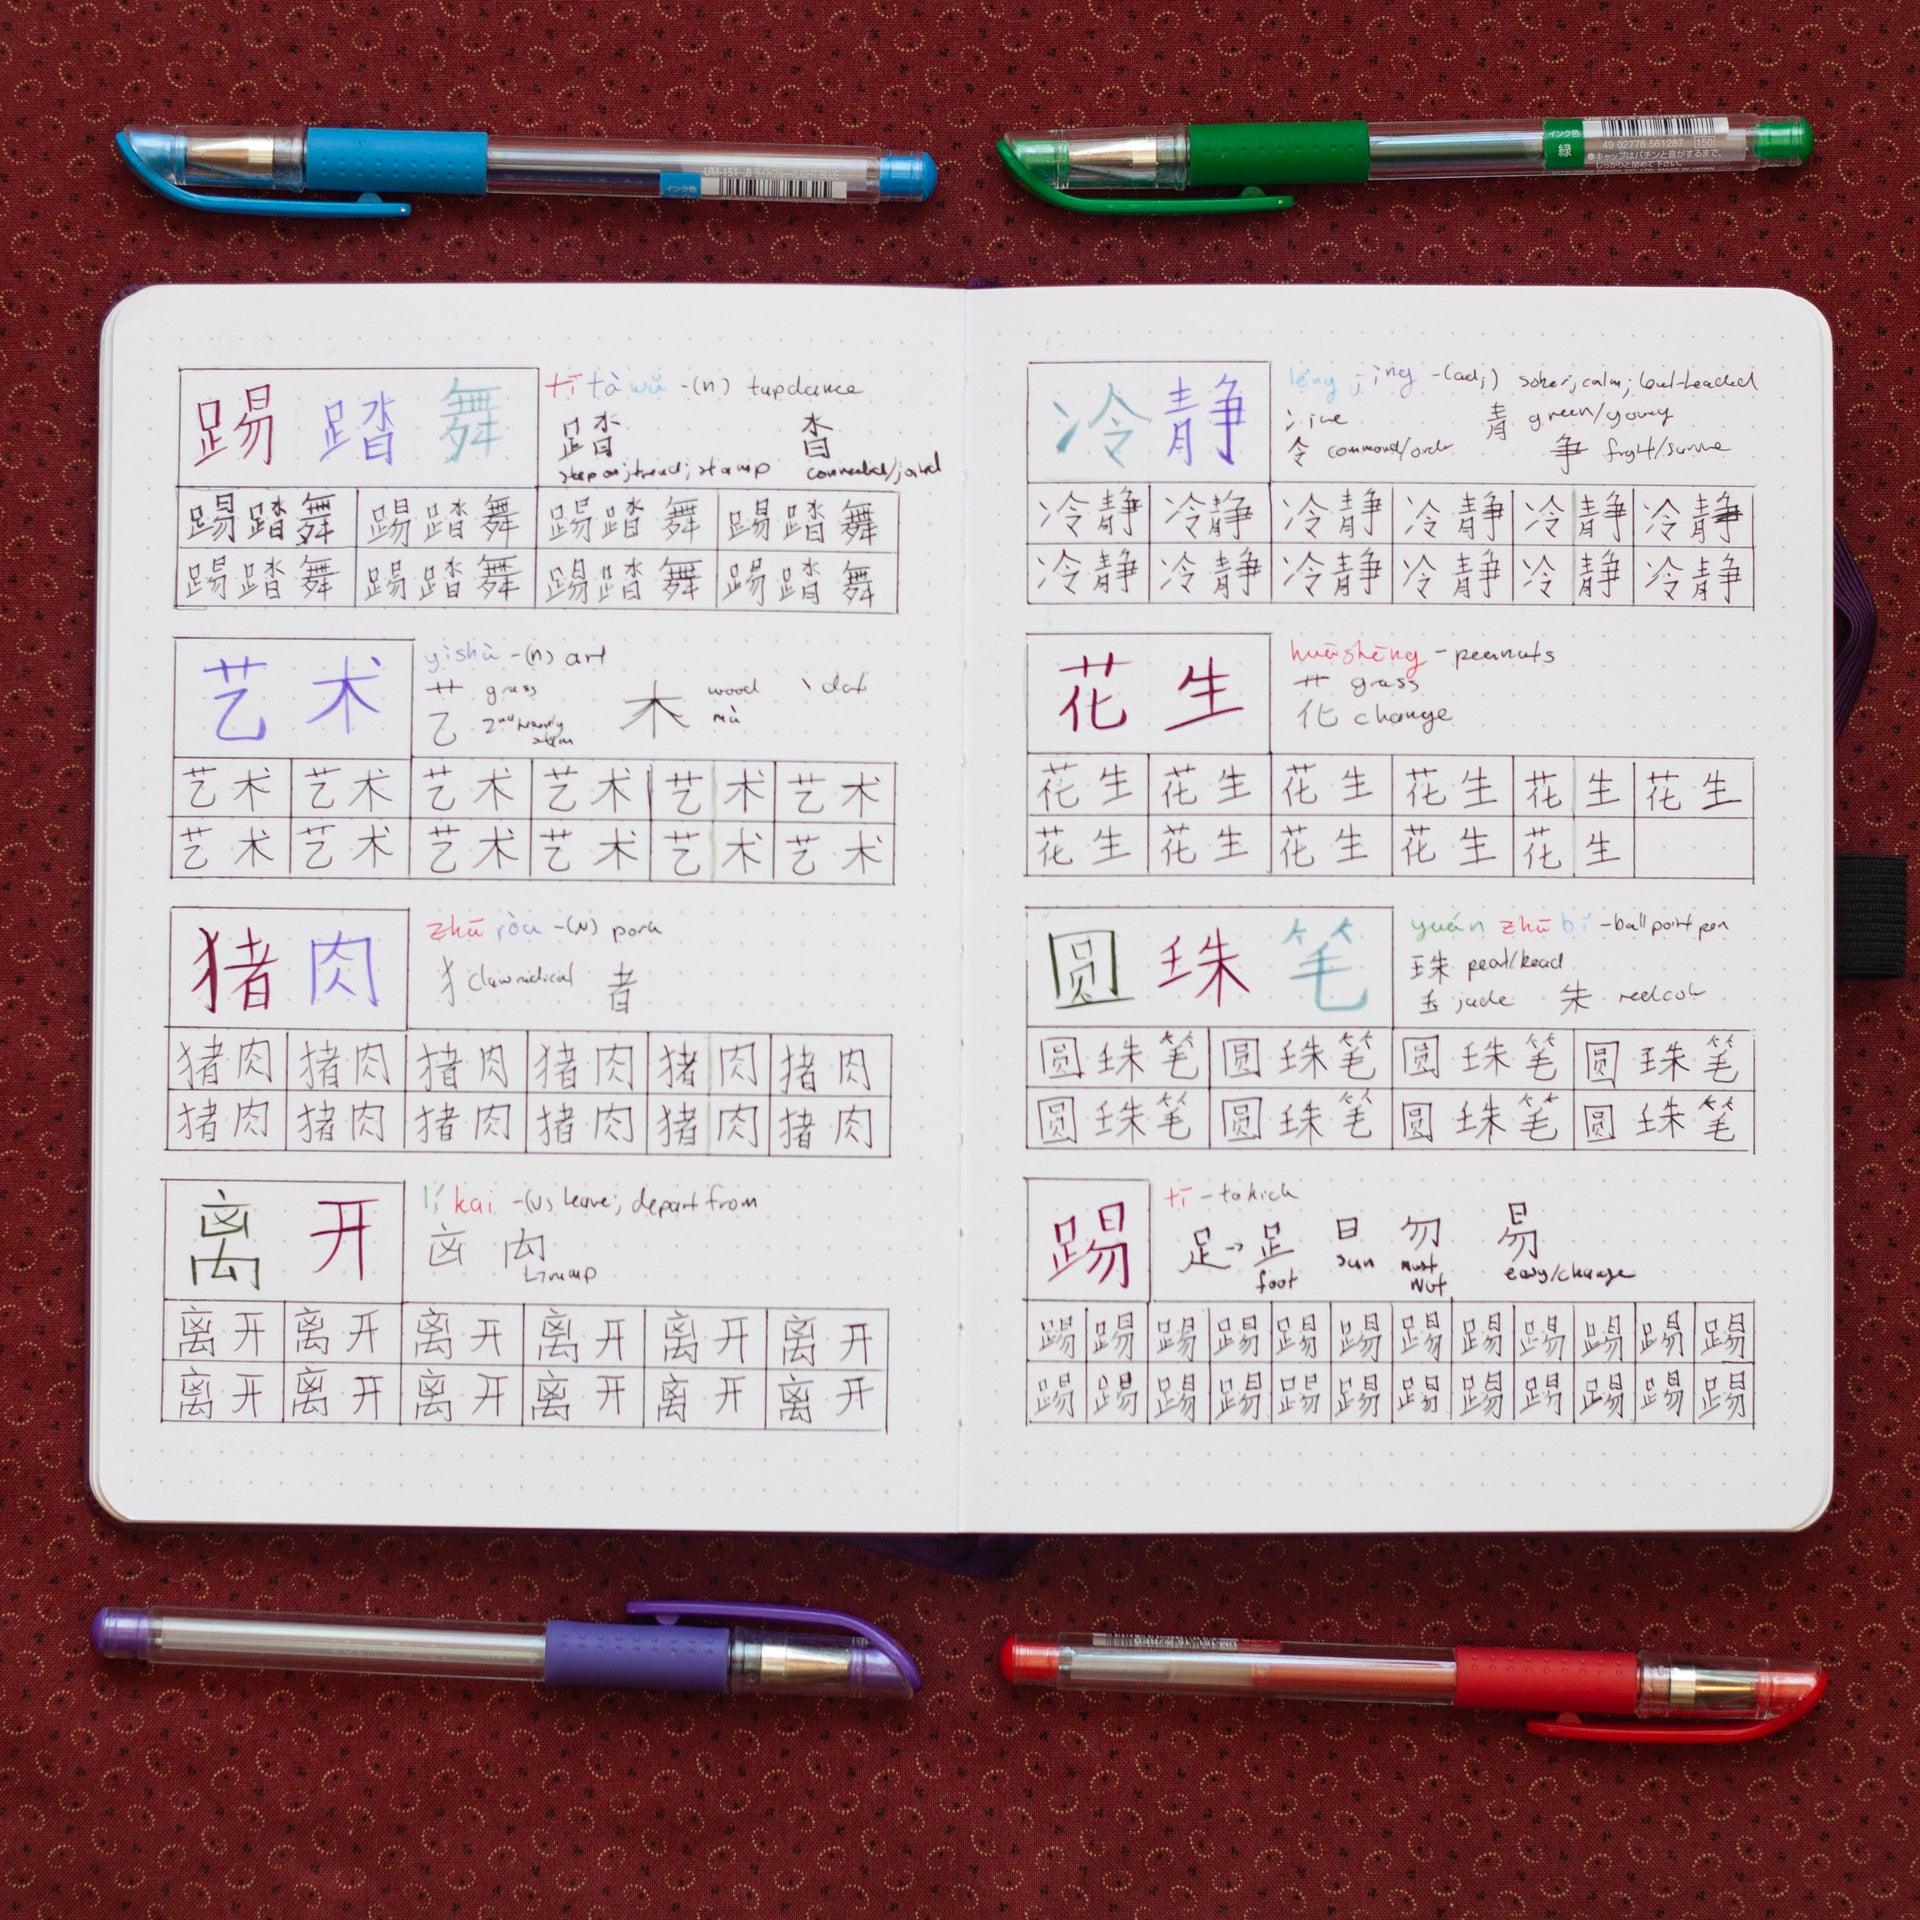 UM-151 .8 ライトブルー/LIGHT BLUE
インク色
インク色
緑
49 02778 561287 [150]
●キャップはパチンと音がするまで、
しっかりと閉めて下さい。
MITSUBISHI PENCIL CO., LTD. MADE IN JAPAN
踢踏舞
tī tà wǔ -(n) tapdance
踏 沓
step on; tread; stamp connected/joined
踢踏舞 踢踏舞 踢踏舞 踢踏舞
踢踏舞 踢踏舞 踢踏舞 踢踏舞
艺术
yìshù -(n) art
艹 grass 木 wood 丶 dot
乙 2nd heavenly stem mù
艺术 艺术 艺术 艺术 艺术 艺术
艺术 艺术 艺术 艺术 艺术 艺术
猪肉
zhū ròu -(N) pork
犭 claw radical 者
猪肉 猪肉 猪肉 猪肉 猪肉 猪肉
猪肉 猪肉 猪肉 猪肉 猪肉 猪肉
离开
lí kai -(v) leave; depart from
离开 离开 离开 离开 离开 离开
离开 离开 离开 离开 离开 离开
冷静
lěng jìng -(adj) sober; calm; cool-headed
冫 ice 青 green/young
令 command/order 争
冷静 冷静 冷静 冷静 冷静 冷静
冷静 冷静 冷静 冷静 冷静 冷静
花生
huāshēng - peanuts
艹 grass
化 change
花生 花生 花生 花生 花生 花生
花生 花生 花生 花生 花生
圆珠笔
yuán zhū bǐ - ballpoint pen
珠 pearl/bead
玉 jade 朱 red color
圆珠笔 圆珠笔 圆珠笔 圆珠笔
圆珠笔 圆珠笔 圆珠笔 圆珠笔
踢
tī - to kick
足 → 𧾷 日 勿 易
foot sun must not easy/change
踢 踢 踢 踢 踢 踢 踢 踢 踢 踢 踢 踢
踢 踢 踢 踢 踢 踢 踢 踢 踢 踢 踢 踢